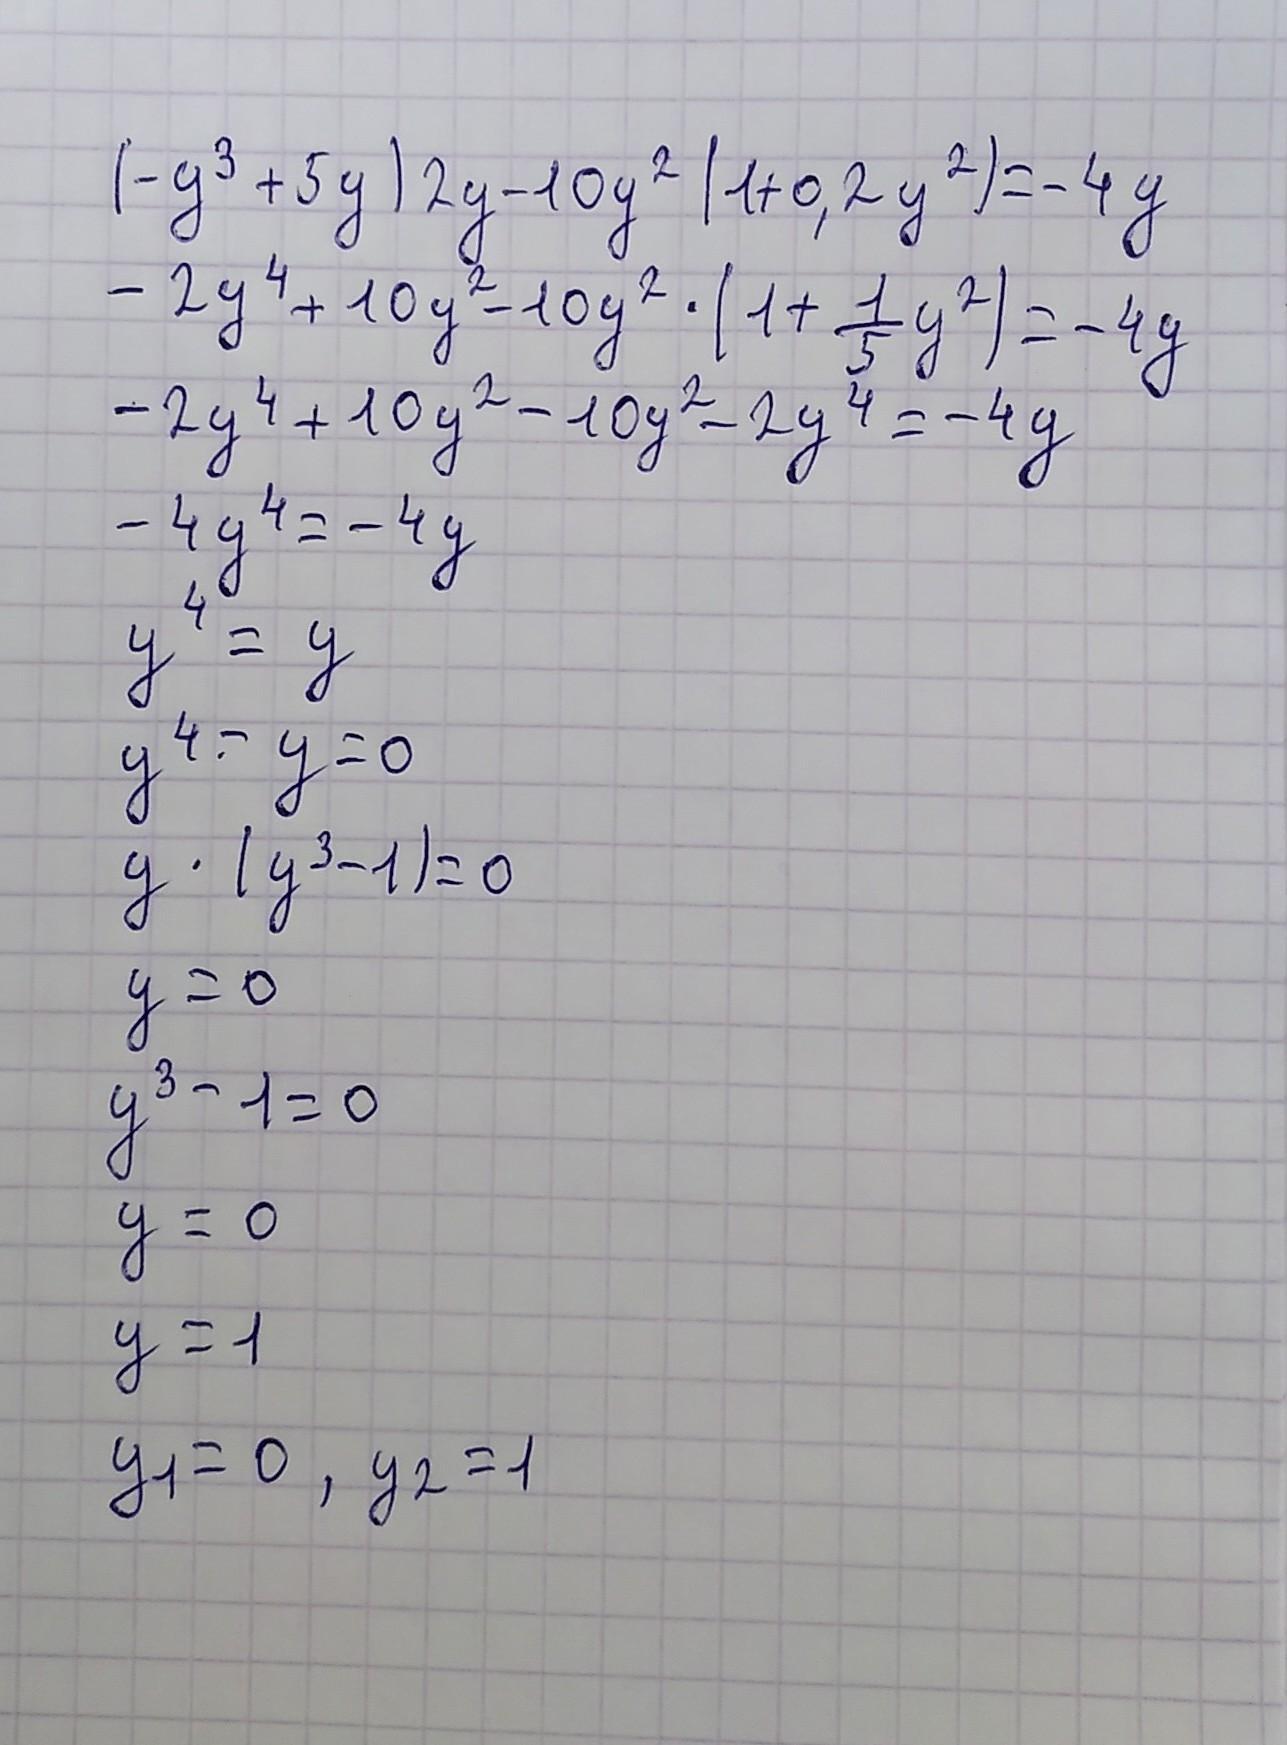 (-y³+5y)2y-10y²(1+0,2y²)=-4y
-2y⁴+10y²-10y²·(1+1/5y²)=-4y
-2y⁴+10y²-10y²-2y⁴=-4y
-4y⁴=-4y
y⁴=y
y⁴-y=0
y·(y³-1)=0
y=0
y³-1=0
y=0
y=1
y₁=0, y₂=1